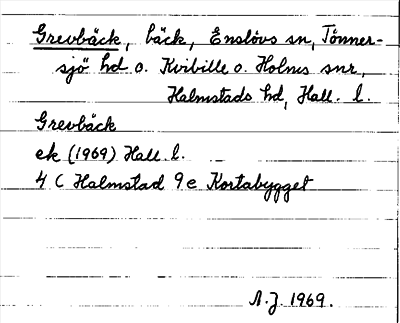 Grevbäck, bäck, Enslövs sn, Tönner-
sjö hd o. Kvibille o. Holms snr,
Halmstads hd, Hall. l.
Grevbäck
ek (1969) Hall. l.
4 C Halmstad 9e Kortabygget
A.J. 1969.